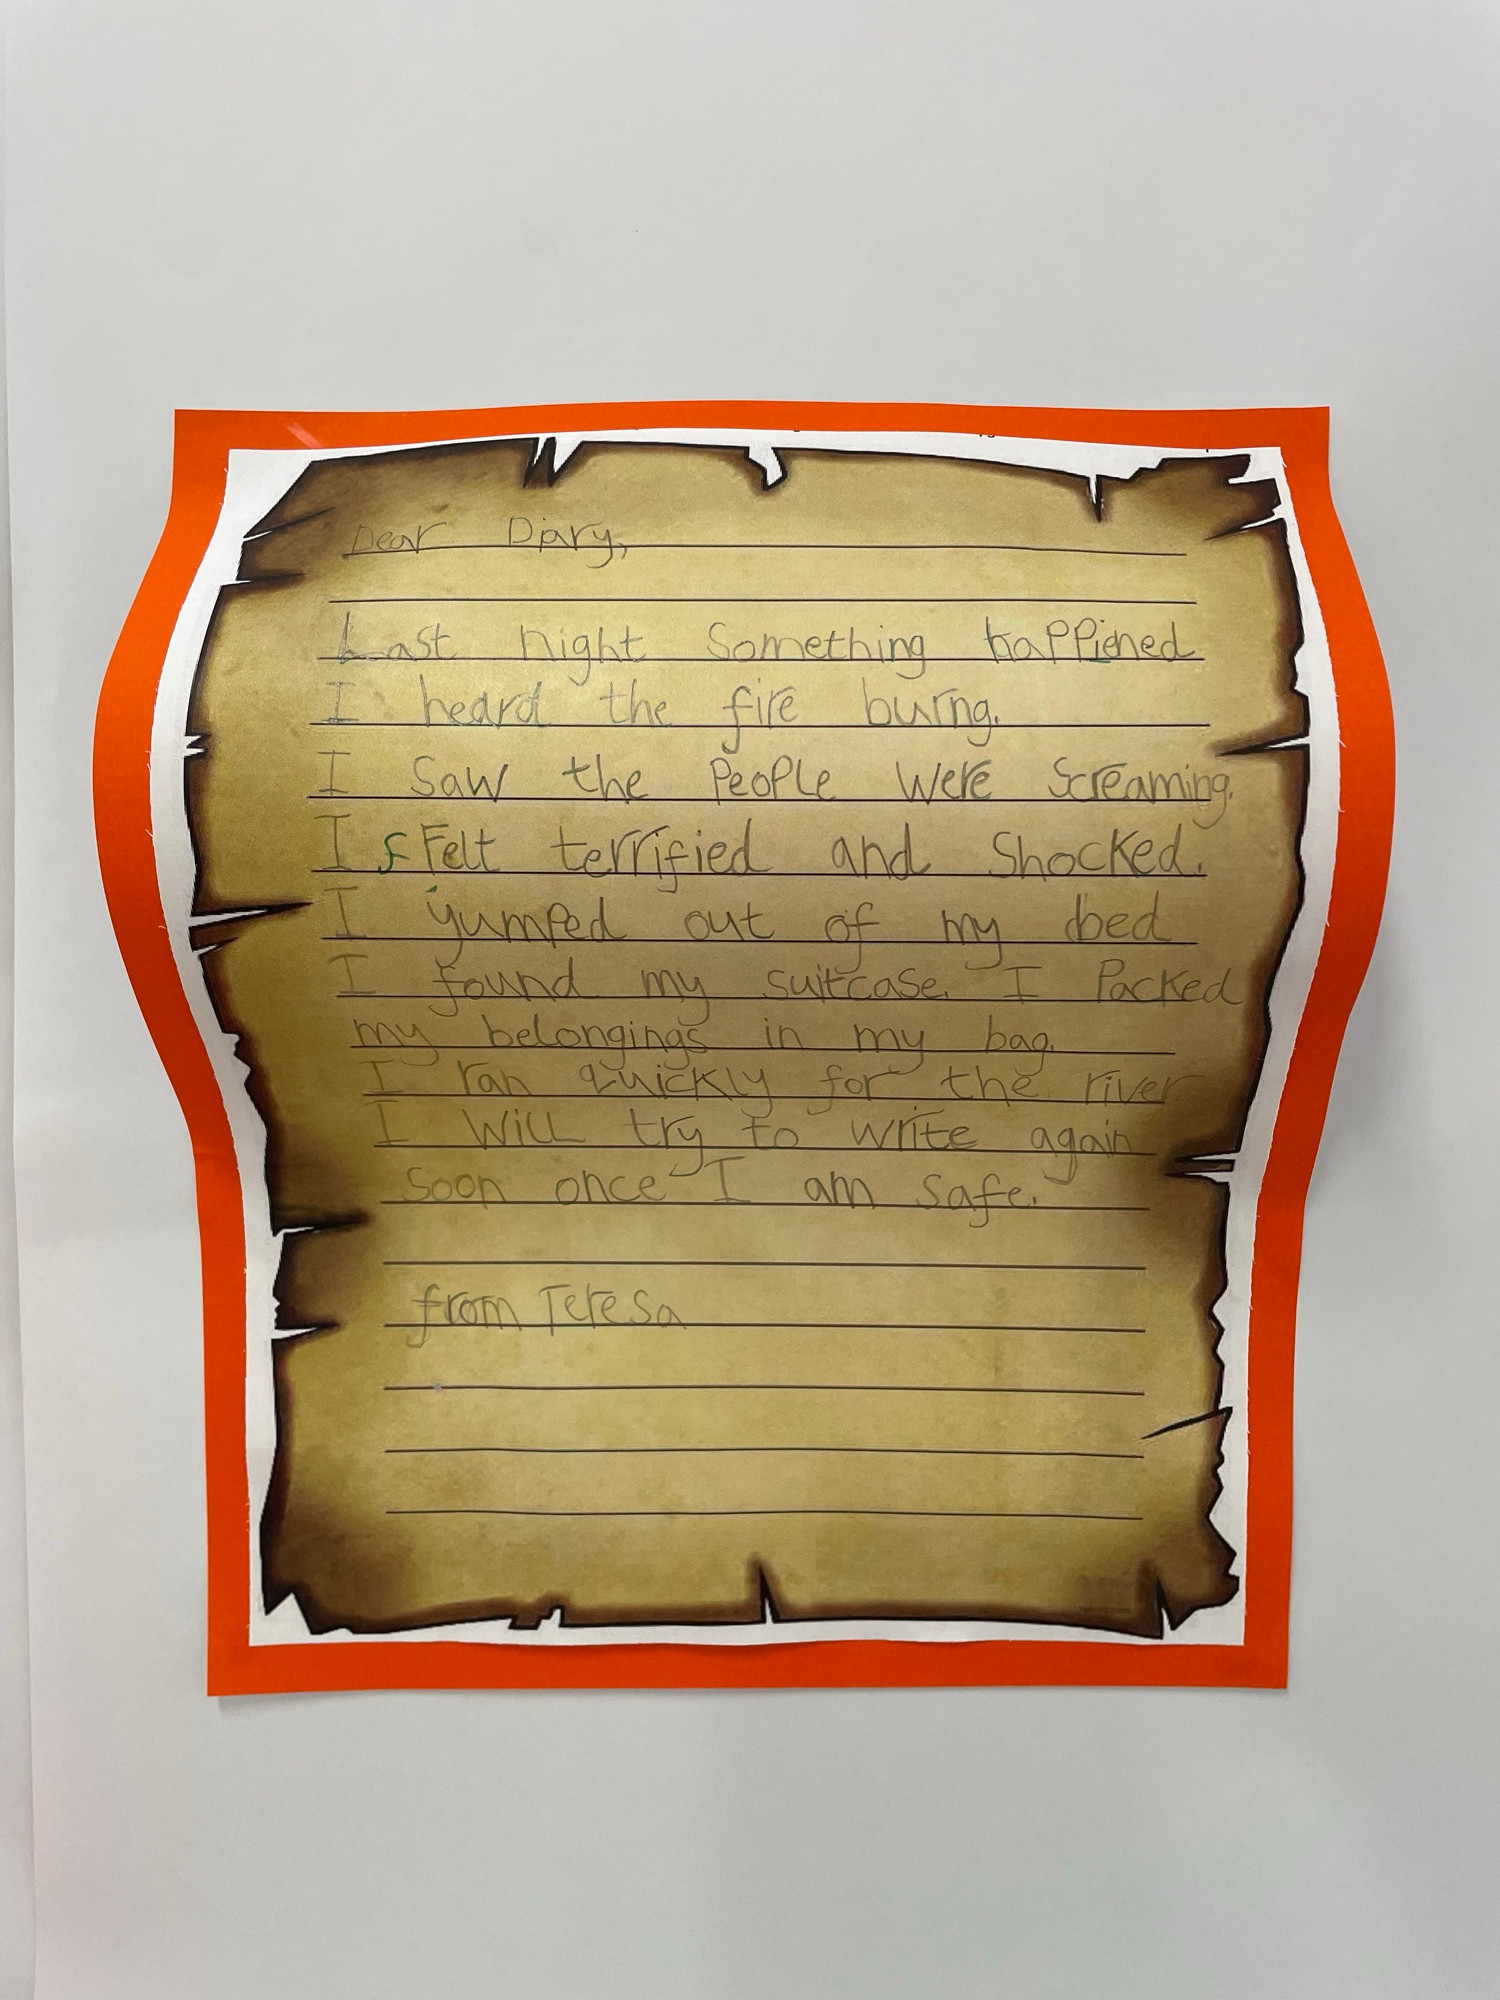 Dear Diary,
Last night Something happiened
I heard the fire burng.
I Saw the People Were Screaming.
I f Felt terrified and Shocked.
I yumped out of my bed
I found my suitcase. I Packed
my belongings in my bag.
I ran quickly for the river
I will try to write again
Soon once I am safe.
from Teresa